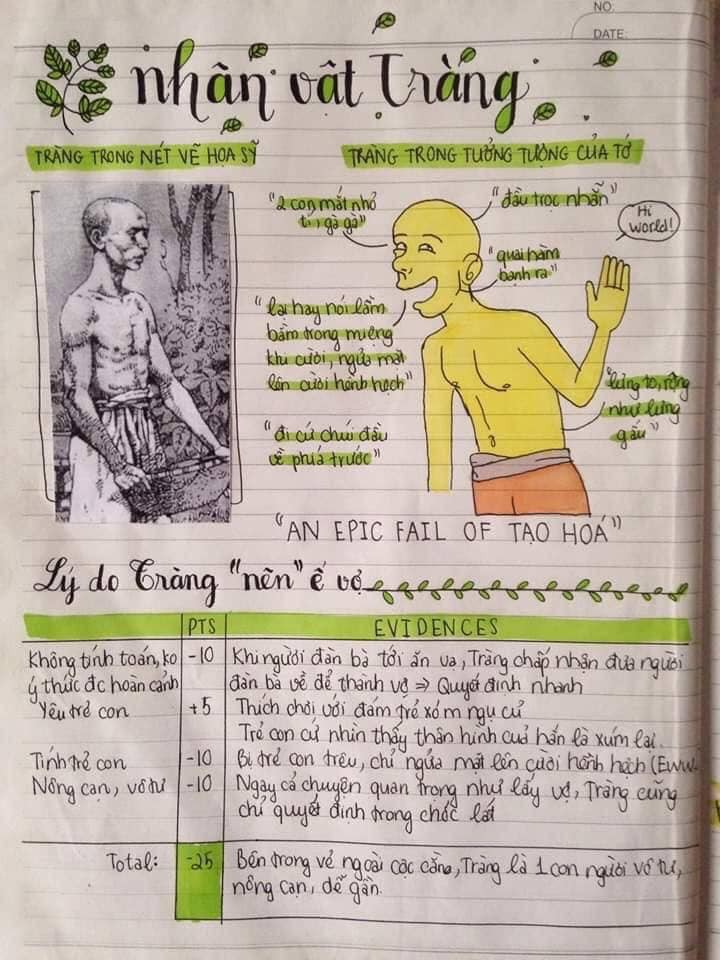 NO:
DATE:
nhân vật Tràng
TRÀNG TRONG NÉT VẼ HỌA SỸ
TRÀNG TRONG TƯỞNG TƯỢNG CỦA TỚ
"2 con mắt nhỏ
tí, gà gà"
"đầu trọc nhẵn"
Hi
World!
"quai hàm
bạnh ra"
"lại hay nói lầm
bầm trong miệng
khi cười, ngửa mặt
lên cười hềnh hệch"
"lưng to, rộng
như lưng
gấu"
"đi cứ chúi đầu
về phía trước"
"AN EPIC FAIL OF TẠO HOÁ"
Lý do Tràng "nên" ế vợ
PTS EVIDENCES
Không tính toán, ko -10 Khi người đàn bà tới ăn vạ, Tràng chấp nhận đưa người
ý thức đc hoàn cảnh đàn bà về để thành vợ => Quyết định nhanh
Yêu trẻ con +5 Thích chơi với đám trẻ xóm ngụ cư
Trẻ con cứ nhìn thấy thân hình của hắn là xúm lại.
Tính trẻ con -10 Bị trẻ con trêu, chỉ ngửa mặt lên cười hềnh hệch (Eww
Nông cạn, vô tư -10 Ngay cả chuyện quan trọng như lấy vợ, Tràng cũng
chỉ quyết định trong chốc lát
Total: -25 Bên trong vẻ ngoài cọc cằn, Tràng là 1 con người vô tư,
nông cạn, dễ gần.